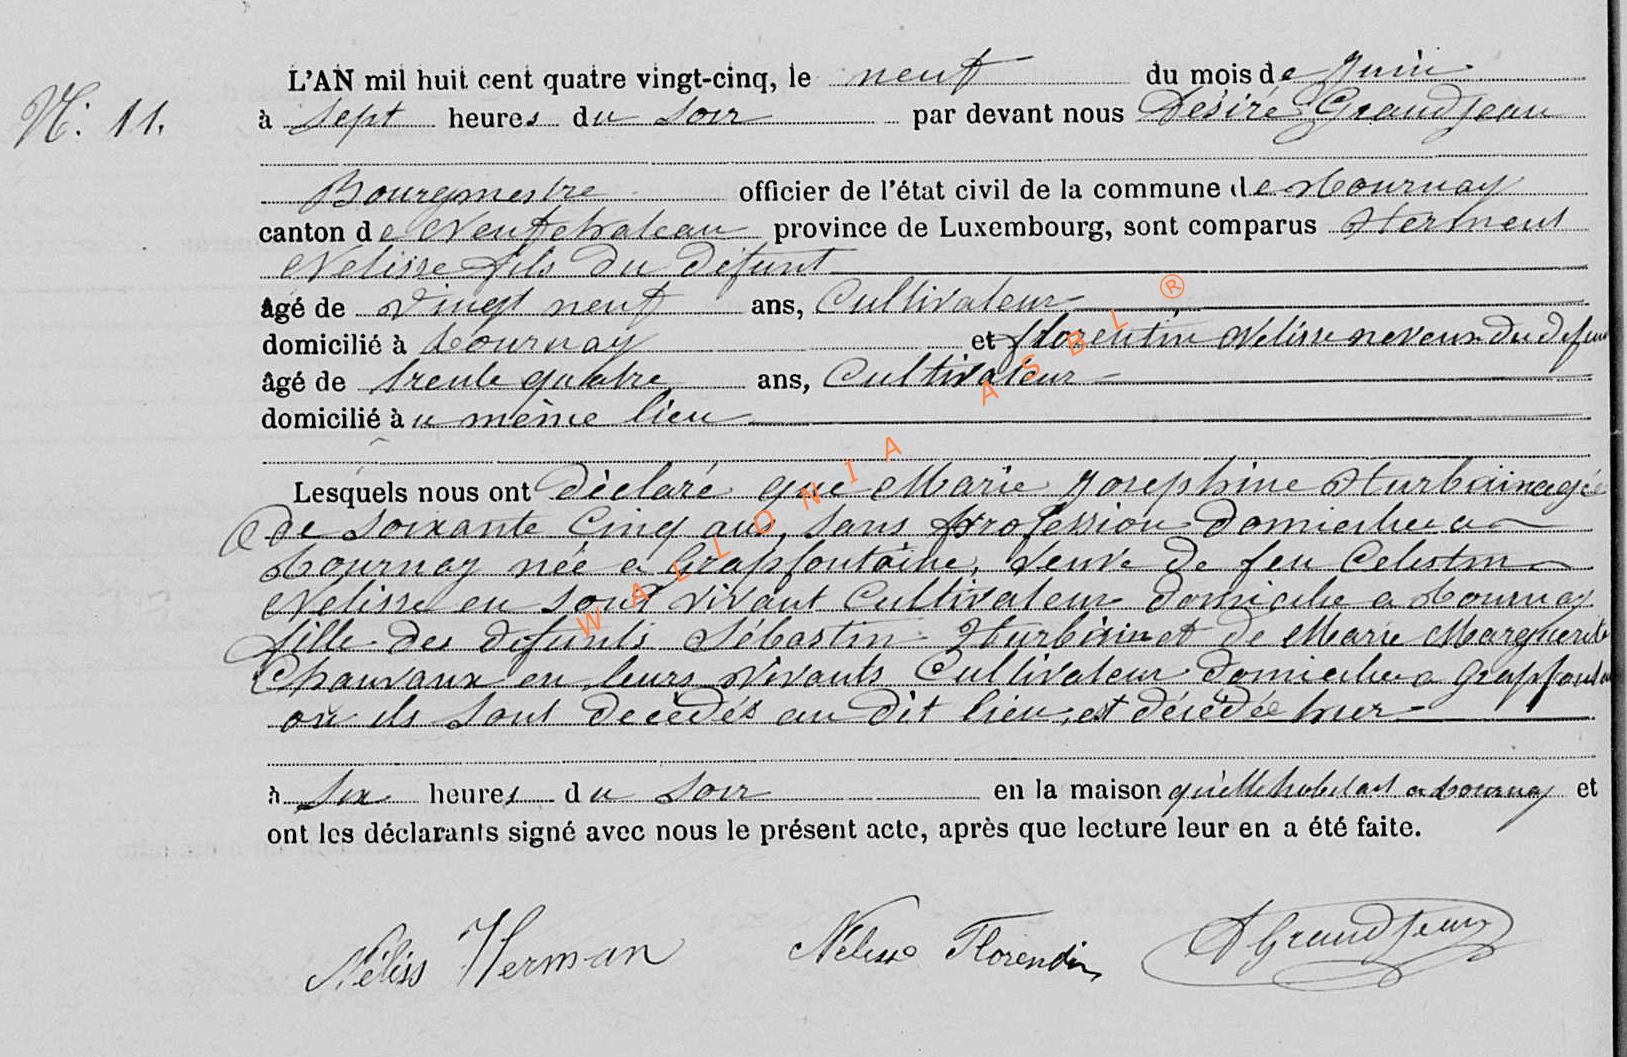 N. 11.
L'AN mil huit cent quatre vingt-cinq, le neuf du mois de Juin
à sept heures du soir par devant nous Désiré Grandjean
Bourgmestre officier de l'état civil de la commune de Tournay
canton de Neufchateau province de Luxembourg, sont comparus Herment
Nélisse fils du défunt
âgé de vingt neuf ans, Cultivateur
domicilié à Tournay et florentin Nelisse neveux du defun
âgé de trente quatre ans, Cultivateur
domicilié à u même lieu
Lesquels nous ont déclaré que Marie Josephine Hurbain agée
de soixante cinq ans, sans profession domiciliee a
Tournay née a Grapfontaine, veuve de feu Celestin
Nelisse en sont vivant Cultivateur domicilie a Tournay
fille des defunts Sébastin Hurbain et de Marie Marguerite
Chauvaux en leurs vivants Cultivateur domicilie a Grapfontai
où ils sont decedés au dit lieu, est décédée hier
à six heures du soir en la maison qu'elle habitait a Tournay et
ont les déclarants signé avec nous le présent acte, après que lecture leur en a été faite.
Néliss Herman Nelisse Florendin D Grandjean
WALLONIA ASBL ®